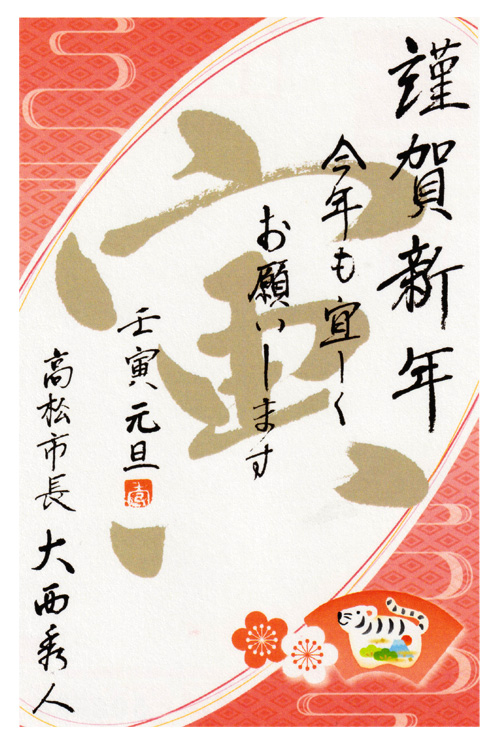 謹賀新年
今年も宜しく
お願いします
壬寅 元旦
高松市長 大西秀人
寅